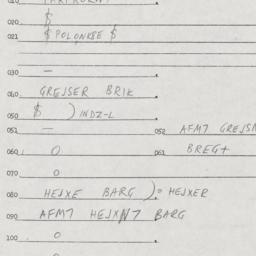 020. $
021 $ POLONKSE $
030. —
040. GREJSER BRIK
050 $ ) INDZ-L
051. — 052 AFM7
060. 0 061 BREG+
070. 0
080. HEJXE BARG ) = HEJXER
090. AFM7 BARG
100. 0